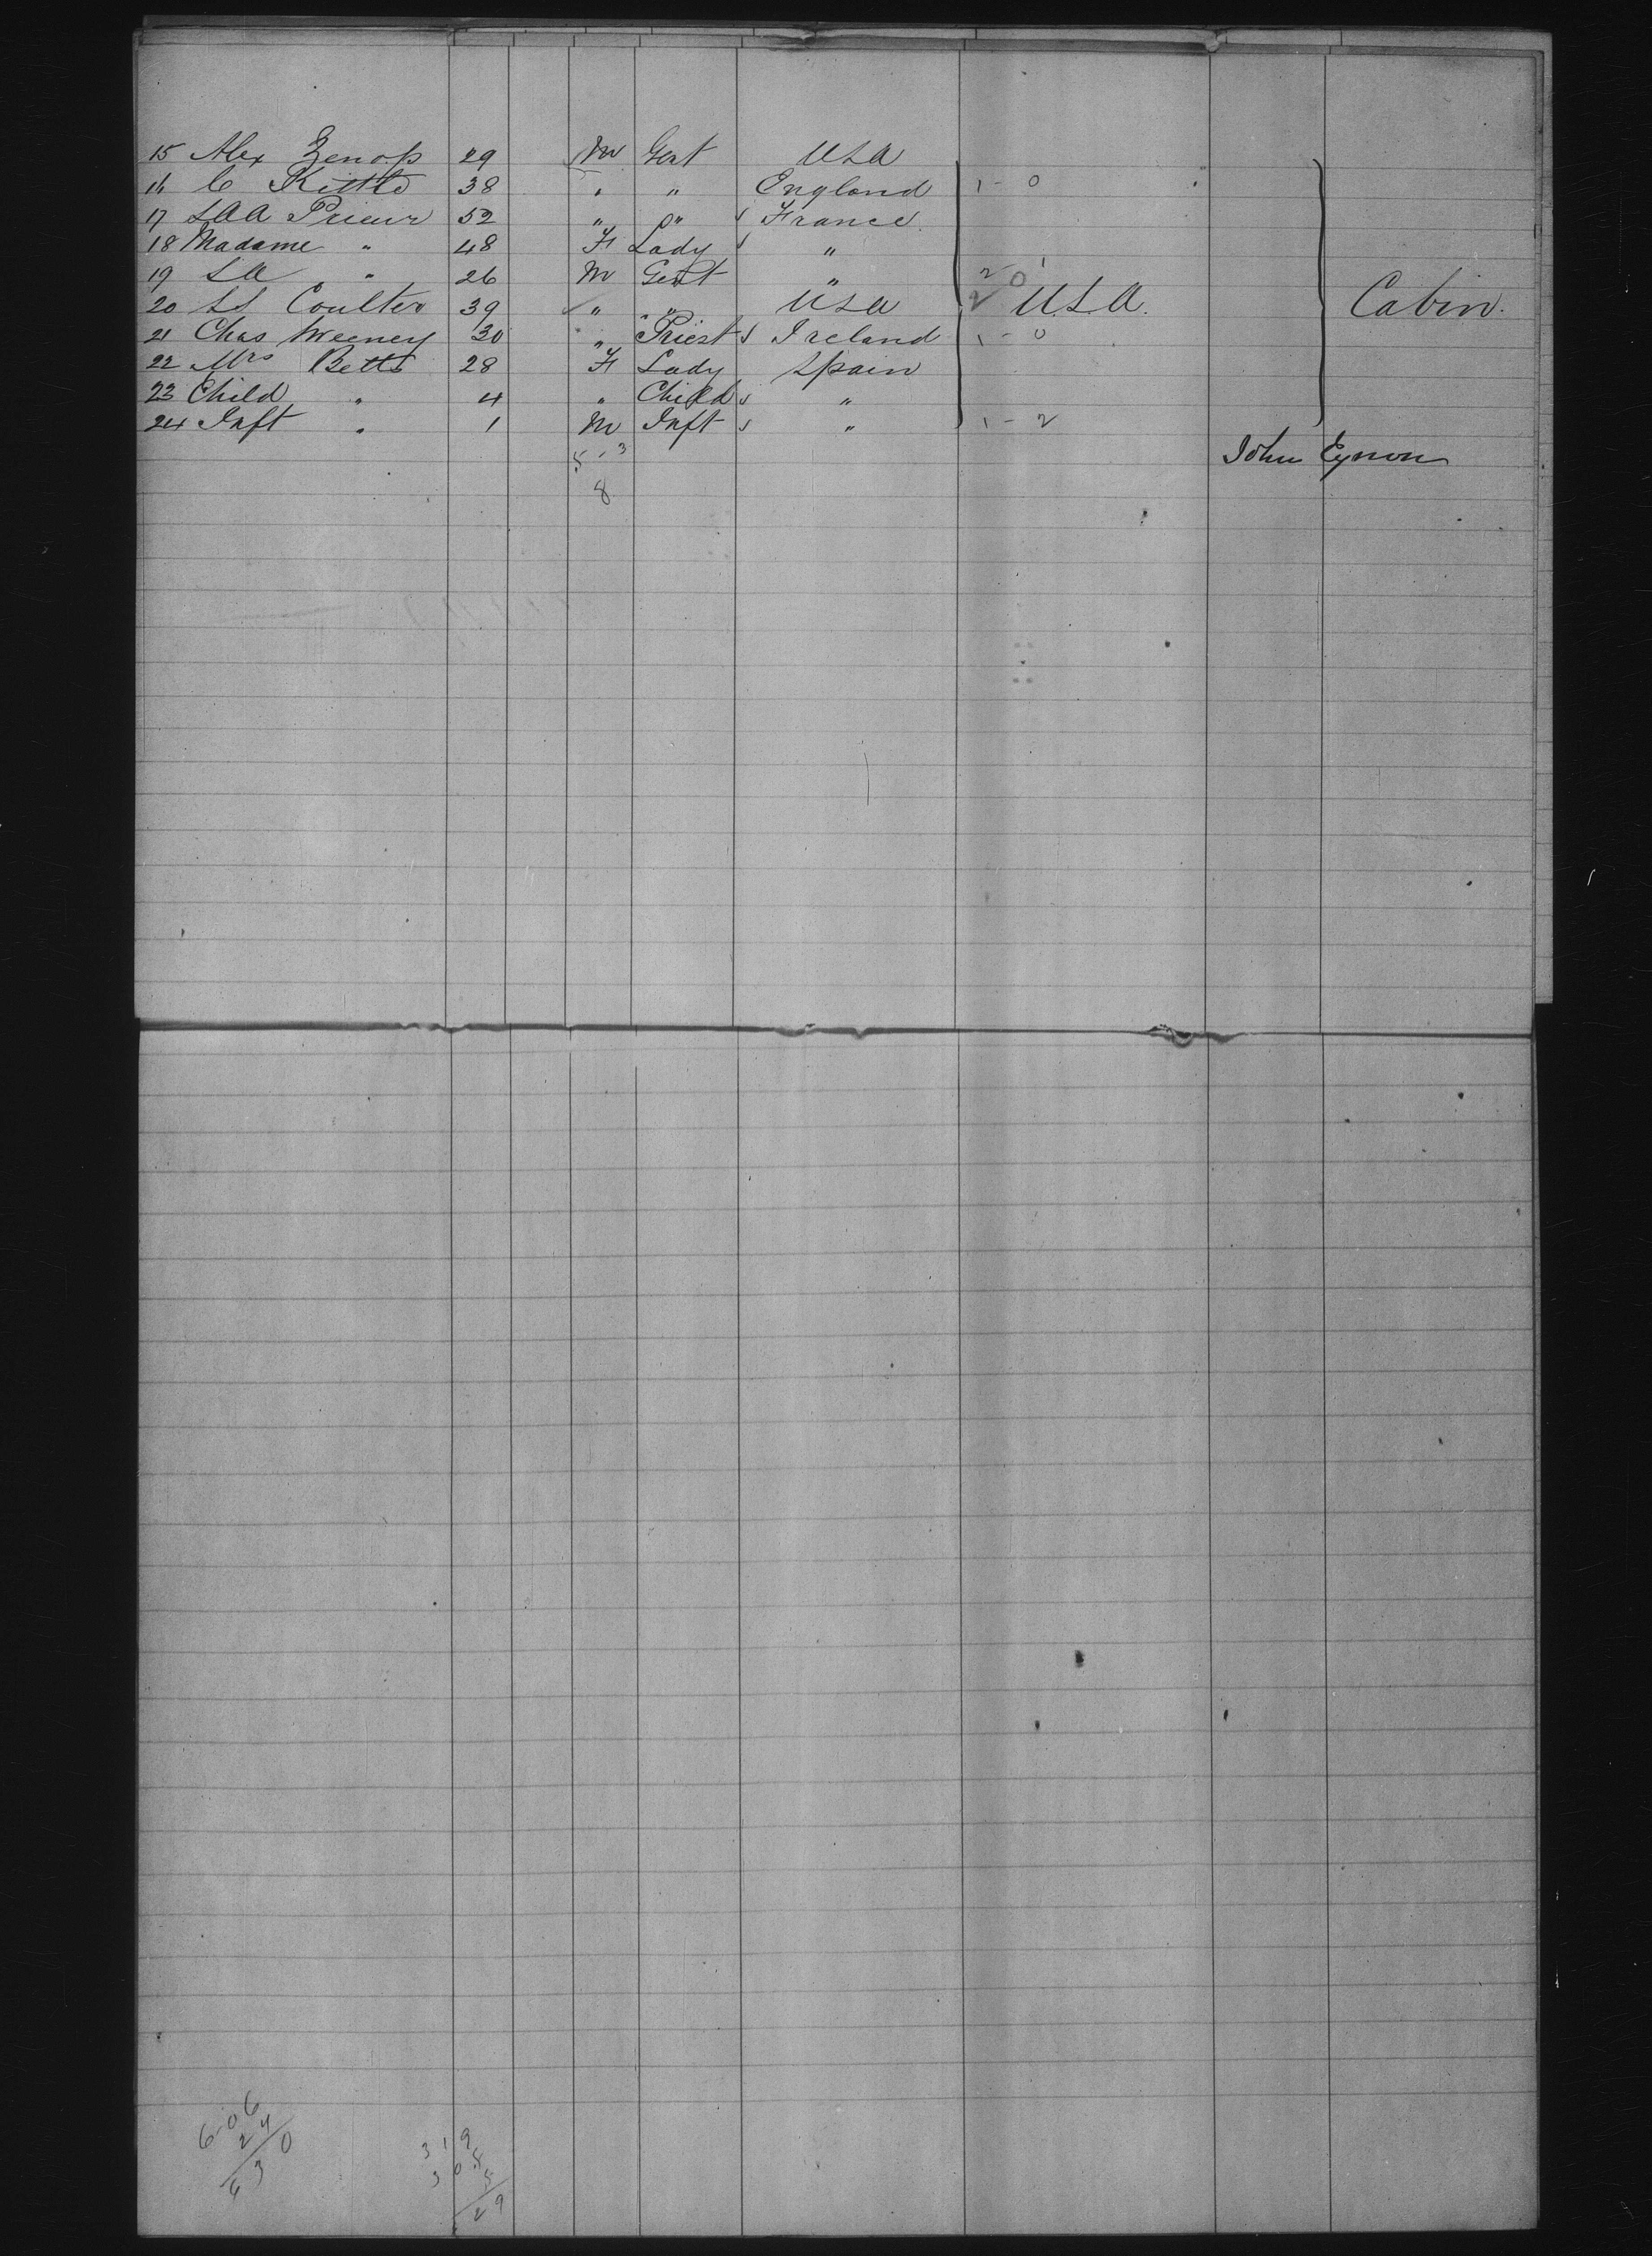 15 Alex Zenop 29 M Gent USA
16 C Kittle 38 " " England 1 - 0
17 L A A Prieur 52 " " France
18 Madame " 48 F Lady "
19 L A " 26 M Gent " 2 - 1
20 Coulter 39 " " USA 2 0 U.S.A. Cabin.
21 Chas Weeney 30 " Priest Ireland 1 - 0
22 Mrs Betts 28 F Lady Spain
23 Child " 4 " Child "
24 Inft " 1 M Inft " 1 - 2
5 - 3 John Eynon
8
606
24
630
319
305
5
29